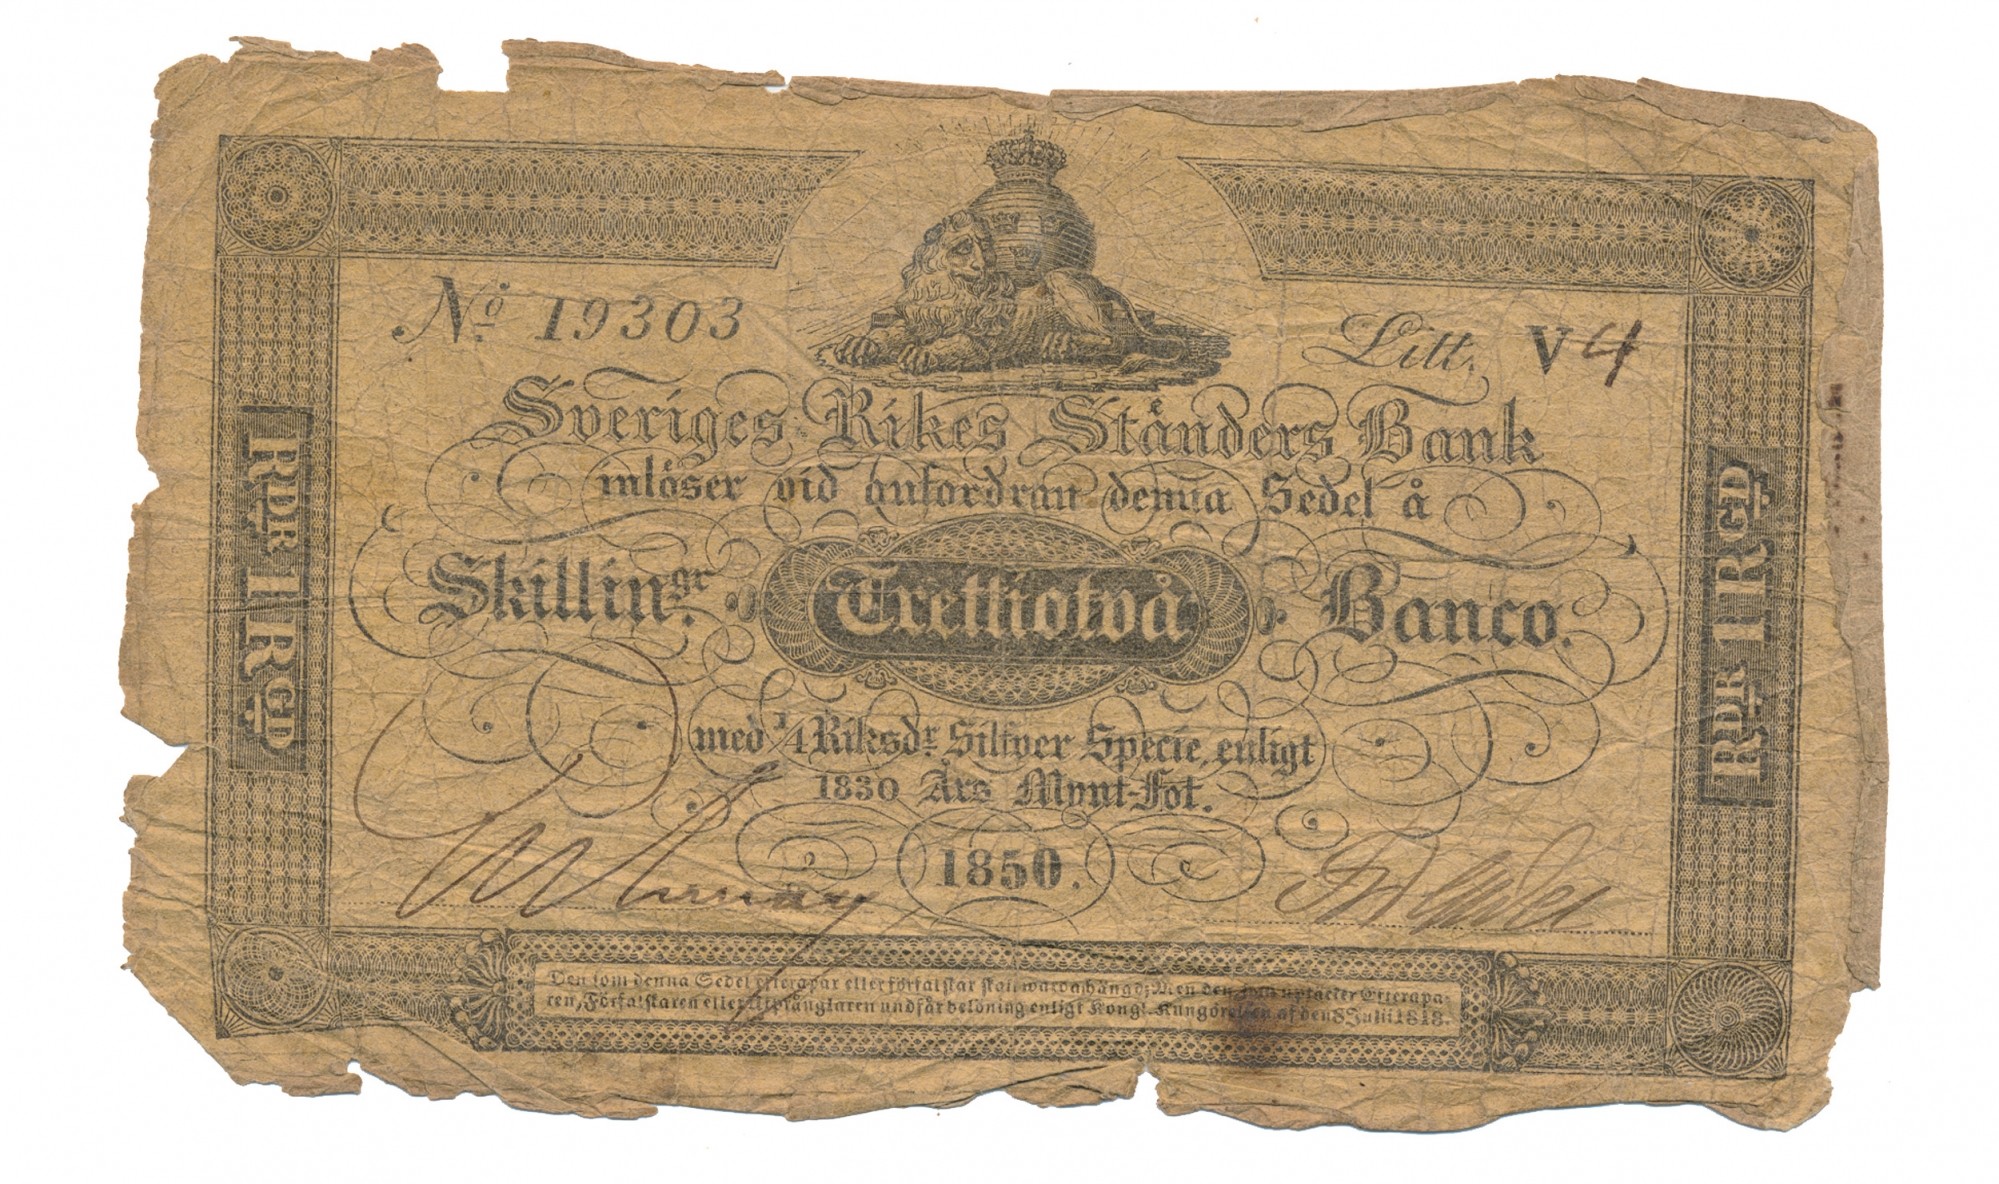 No 19303
Litt. V 4
Sveriges Rikes Ständers Bank
inlöser vid anfordran denna Sedel å
Skillingr. Trettiotvå Banco.
med 1/4 Riksdr Silfver Specie, enligt
1830 Års Mynt-Fot.
1850.
RDR 1 RGD
RDR 1 RGD
Den som denna Sedel efterapar eller förfalskar skall warda hängd; Men den som uptäcker Efterapa-
ren, Förfalskaren eller Utprånglaren undfår belöning enligt Kongl. Kungörelsen af den 8 Julii 1818.